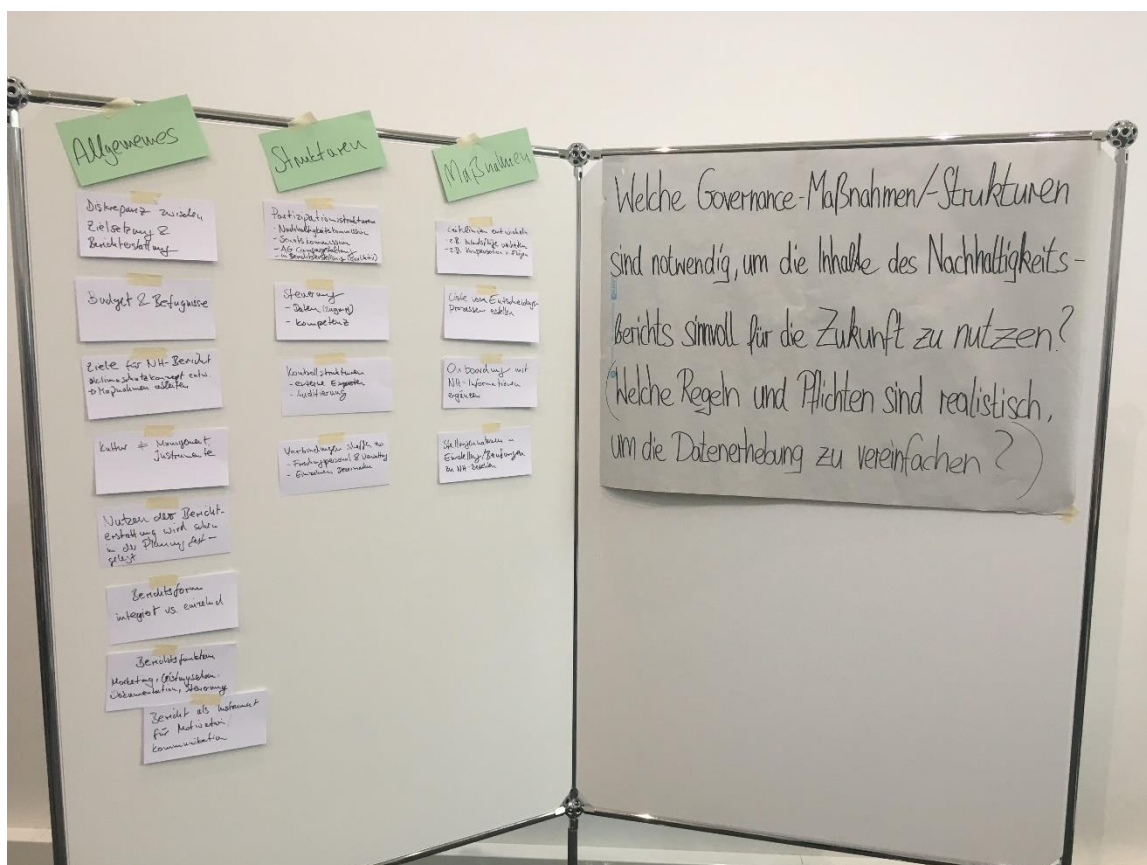 Allgemeines
Diskrepanz zwischen
Zielsetzung &
Berichterstattung
Budget & Befugnisse
Ziele für NH-Bericht
Maßnahmen ableiten
Kultur
Management
Instrumente
Nutzen der Bericht-
erstattung wird schon
in der Planung fest-
gelegt
Berichtsform
integriert vs. einzelnd
Berichtsfunktion
Marketing,
Dokumentation, Steuerung
Bericht als Instrument
für Motivation
Kommunikation
Strukturen
Partizipationsstrukturen
- Nachhaltigkeitskommission
- Senatskommission
Steuerung
- Daten (Zugang)
- Kompetenz
Kontrollstrukturen
- externe Experten
- Auditierung
Verbindungen schaffen
- Forschungspersonal & Verwaltung
Maßnahmen
Leitlinien entwickeln
- z.B.
- z.B.
Liste von Entscheidungs-
prozessen erstellen
Onboarding mit
NH-Informationen
ergänzen
NH-
Welche Governance-Maßnahmen/-Strukturen
sind notwendig, um die Inhalte des Nachhaltigkeits-
berichts sinnvoll für die Zukunft zu nutzen?
(Welche Regeln und Pflichten sind realistisch,
um die Datenerhebung zu vereinfachen?)